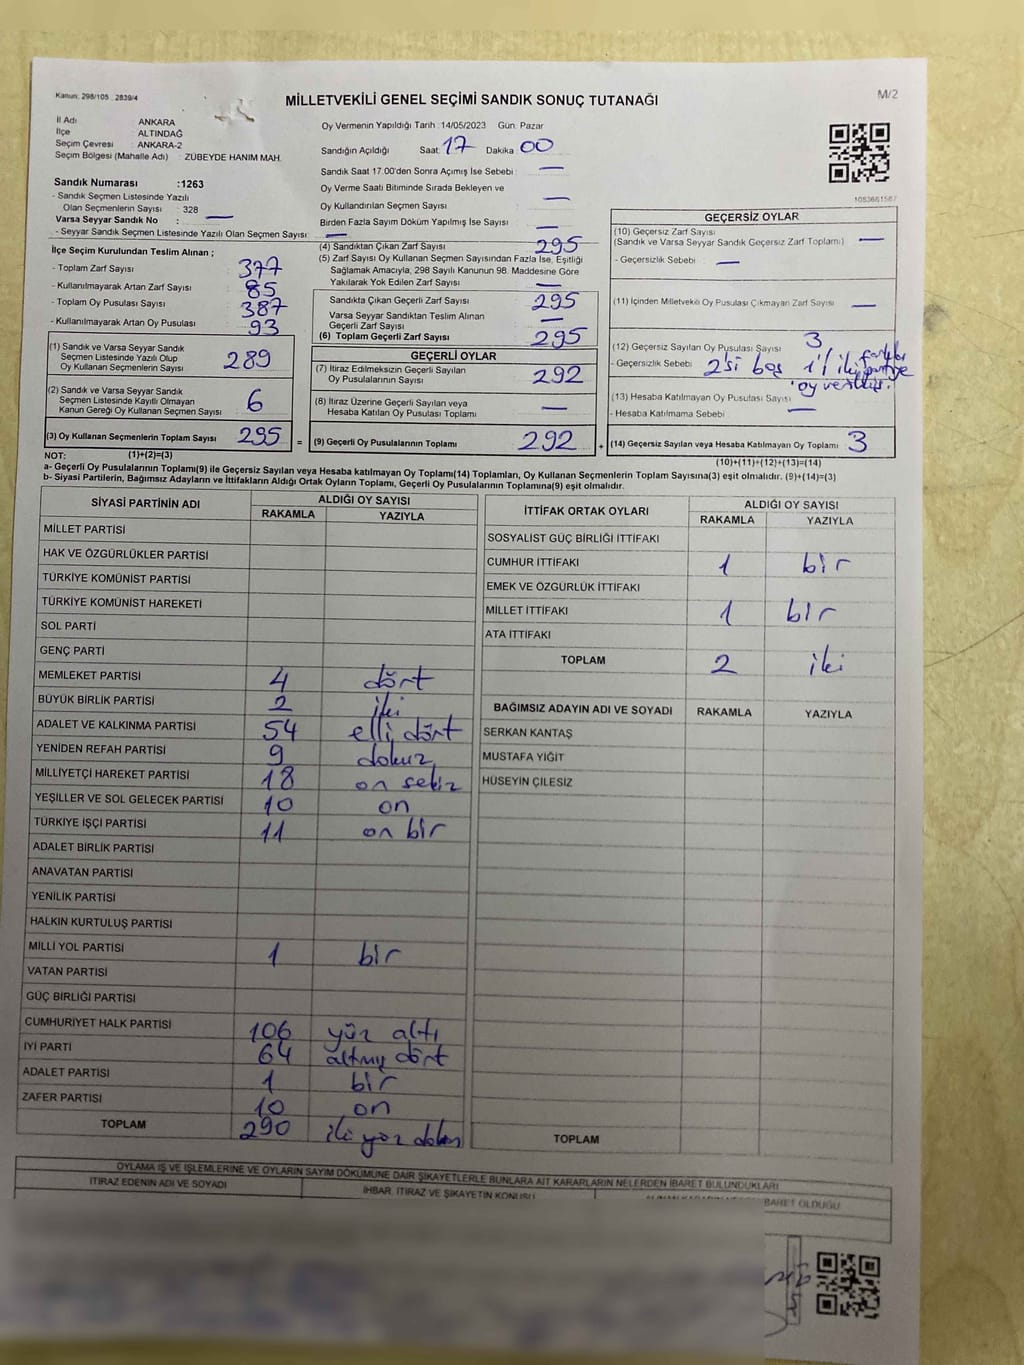 Kanun: 298/105 , 2839/4
MİLLETVEKİLİ GENEL SEÇİMİ SANDIK SONUÇ TUTANAĞI
M/2
İl Adı ANKARA
İlçe ALTINDAĞ
Seçim Çevresi : ANKARA-2
Seçim Bölgesi (Mahalle Adı) : ZÜBEYDE HANIM MAH.
Oy Vermenin Yapıldığı Tarih :14/05/2023 Gün: Pazar
Sandığın Açıldığı Saat: 17 Dakika 00
Sandık Saat 17.00'den Sonra Açımış İse Sebebi : —
Oy Verme Saati Bitiminde Sırada Bekleyen ve
Oy Kullandırılan Seçmen Sayısı : —
Birden Fazla Sayım Döküm Yapılmış İse Sayısı : —
1083681587
Sandık Numarası :1263
- Sandık Seçmen Listesinde Yazılı
Olan Seçmenlerin Sayısı : 328
Varsa Seyyar Sandık No : —
- Seyyar Sandık Seçmen Listesinde Yazılı Olan Seçmen Sayısı: —
İlçe Seçim Kurulundan Teslim Alınan ;
- Toplam Zarf Sayısı : 377
- Kullanılmayarak Artan Zarf Sayısı : 85
- Toplam Oy Pusulası Sayısı : 387
- Kullanılmayarak Artan Oy Pusulası : 93
(1) Sandık ve Varsa Seyyar Sandık
Seçmen Listesinde Yazılı Olup
Oy Kullanan Seçmenlerin Sayısı 289
(2) Sandık ve Varsa Seyyar Sandık
Seçmen Listesinde Kayıtlı Olmayan
Kanun Gereği Oy Kullanan Seçmen Sayısı 6
(3) Oy Kullanan Seçmenlerin Toplam Sayısı 295 =
(4) Sandıktan Çıkan Zarf Sayısı : 295
(5) Zarf Sayısı Oy Kullanan Seçmen Sayısından Fazla İse, Eşitliği
Sağlamak Amacıyla, 298 Sayılı Kanunun 98. Maddesine Göre
Yakılarak Yok Edilen Zarf Sayısı : —
Sandıkta Çıkan Geçerli Zarf Sayısı 295
Varsa Seyyar Sandıktan Teslim Alınan
Geçerli Zarf Sayısı —
(6) Toplam Geçerli Zarf Sayısı 295
GEÇERLİ OYLAR
(7) İtiraz Edilmeksizin Geçerli Sayılan
Oy Pusulalarının Sayısı : 292
(8) İtiraz Üzerine Geçerli Sayılan veya
Hesaba Katılan Oy Pusulası Toplamı —
(9) Geçerli Oy Pusulalarının Toplamı 292 +
GEÇERSİZ OYLAR
(10) Geçersiz Zarf Sayısı
(Sandık ve Varsa Seyyar Sandık Geçersiz Zarf Toplamı) —
- Geçersizlik Sebebi : —
(11) İçinden Milletvekili Oy Pusulası Çıkmayan Zarf Sayısı : —
(12) Geçersiz Sayılan Oy Pusulası Sayısı : 3
- Geçersizlik Sebebi 2'si boş 1'i iki farklı
partiye
oy verilmiş.
(13) Hesaba Katılmayan Oy Pusulası Sayısı : —
- Hesaba Katılmama Sebebi :
(14) Geçersiz Sayılan veya Hesaba Katılmayan Oy Toplamı 3
NOT: (1)+(2)=(3) (10)+(11)+(12)+(13)=(14)
a- Geçerli Oy Pusulalarının Toplamı(9) ile Geçersiz Sayılan veya Hesaba katılmayan Oy Toplamı(14) Toplamları, Oy Kullanan Seçmenlerin Toplam Sayısına(3) eşit olmalıdır. (9)+(14)=(3)
b- Siyasi Partilerin, Bağımsız Adayların ve İttifakların Aldığı Ortak Oyların Toplamı, Geçerli Oy Pusulalarının Toplamına(9) eşit olmalıdır.
SİYASİ PARTİNİN ADI ALDIĞI OY SAYISI
RAKAMLA YAZIYLA
MİLLET PARTİSİ
HAK VE ÖZGÜRLÜKLER PARTİSİ
TÜRKİYE KOMÜNİST PARTİSİ
TÜRKİYE KOMÜNİST HAREKETİ
SOL PARTİ
GENÇ PARTİ
MEMLEKET PARTİSİ 4 dört
BÜYÜK BİRLİK PARTİSİ 2 iki
ADALET VE KALKINMA PARTİSİ 54 elli dört
YENİDEN REFAH PARTİSİ 9 dokuz
MİLLİYETÇİ HAREKET PARTİSİ 18 on sekiz
YEŞİLLER VE SOL GELECEK PARTİSİ 10 on
TÜRKİYE İŞÇİ PARTİSİ 11 on bir
ADALET BİRLİK PARTİSİ
ANAVATAN PARTİSİ
YENİLİK PARTİSİ
HALKIN KURTULUŞ PARTİSİ
MİLLİ YOL PARTİSİ 1 bir
VATAN PARTİSİ
GÜÇ BİRLİĞİ PARTİSİ
CUMHURİYET HALK PARTİSİ 106 yüz altı
İYİ PARTİ 64 altmış dört
ADALET PARTİSİ 1 bir
ZAFER PARTİSİ 10 on
TOPLAM 290 iki yüz doksan
İTTİFAK ORTAK OYLARI ALDIĞI OY SAYISI
RAKAMLA YAZIYLA
SOSYALİST GÜÇ BİRLİĞİ İTTİFAKI
CUMHUR İTTİFAKI 1 bir
EMEK VE ÖZGÜRLÜK İTTİFAKI
MİLLET İTTİFAKI 1 bir
ATA İTTİFAKI
TOPLAM 2 iki
BAĞIMSIZ ADAYIN ADI VE SOYADI RAKAMLA YAZIYLA
SERKAN KANTAŞ
MUSTAFA YİĞİT
HÜSEYİN ÇİLESİZ
TOPLAM
OYLAMA İŞ VE İŞLEMLERİNE VE OYLARIN SAYIM DÖKÜMÜNE DAİR ŞİKAYETLERLE BUNLARA AİT KARARLARIN NELERDEN İBARET BULUNDUKLARI
İTİRAZ EDENİN ADI VE SOYADI İHBAR, İTİRAZ VE ŞİKAYETİN KONUSU İBARET OLDUĞU